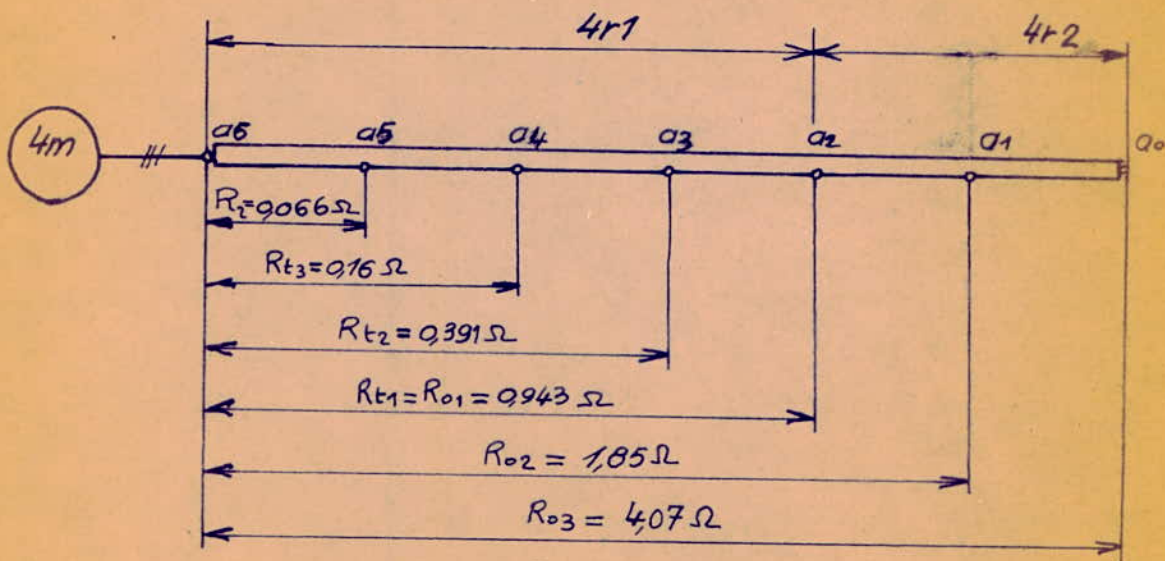 4r1 4r2
4m
a6 a5 a4 a3 a2 a1 a0
R2=0,066Ω
Rt3=0,16 Ω
Rt2=0,391Ω
Rt1=R01=0,943 Ω
R02 = 1,85Ω
R03 = 4,07 Ω